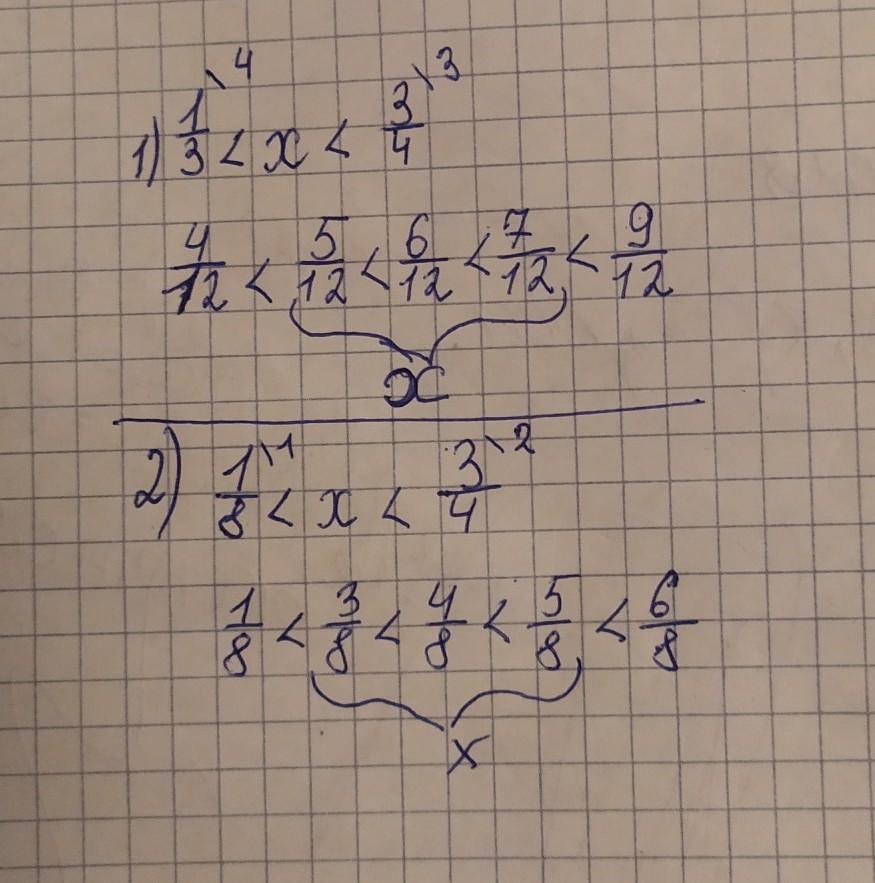 1) 1/3 \4 < x < 3/4 \3
4/12 < 5/12 < 6/12 < 7/12 < 9/12
x
2) 1/8 \1 < x < 3/4 \2
1/8 < 3/8 < 4/8 < 5/8 < 6/8
x